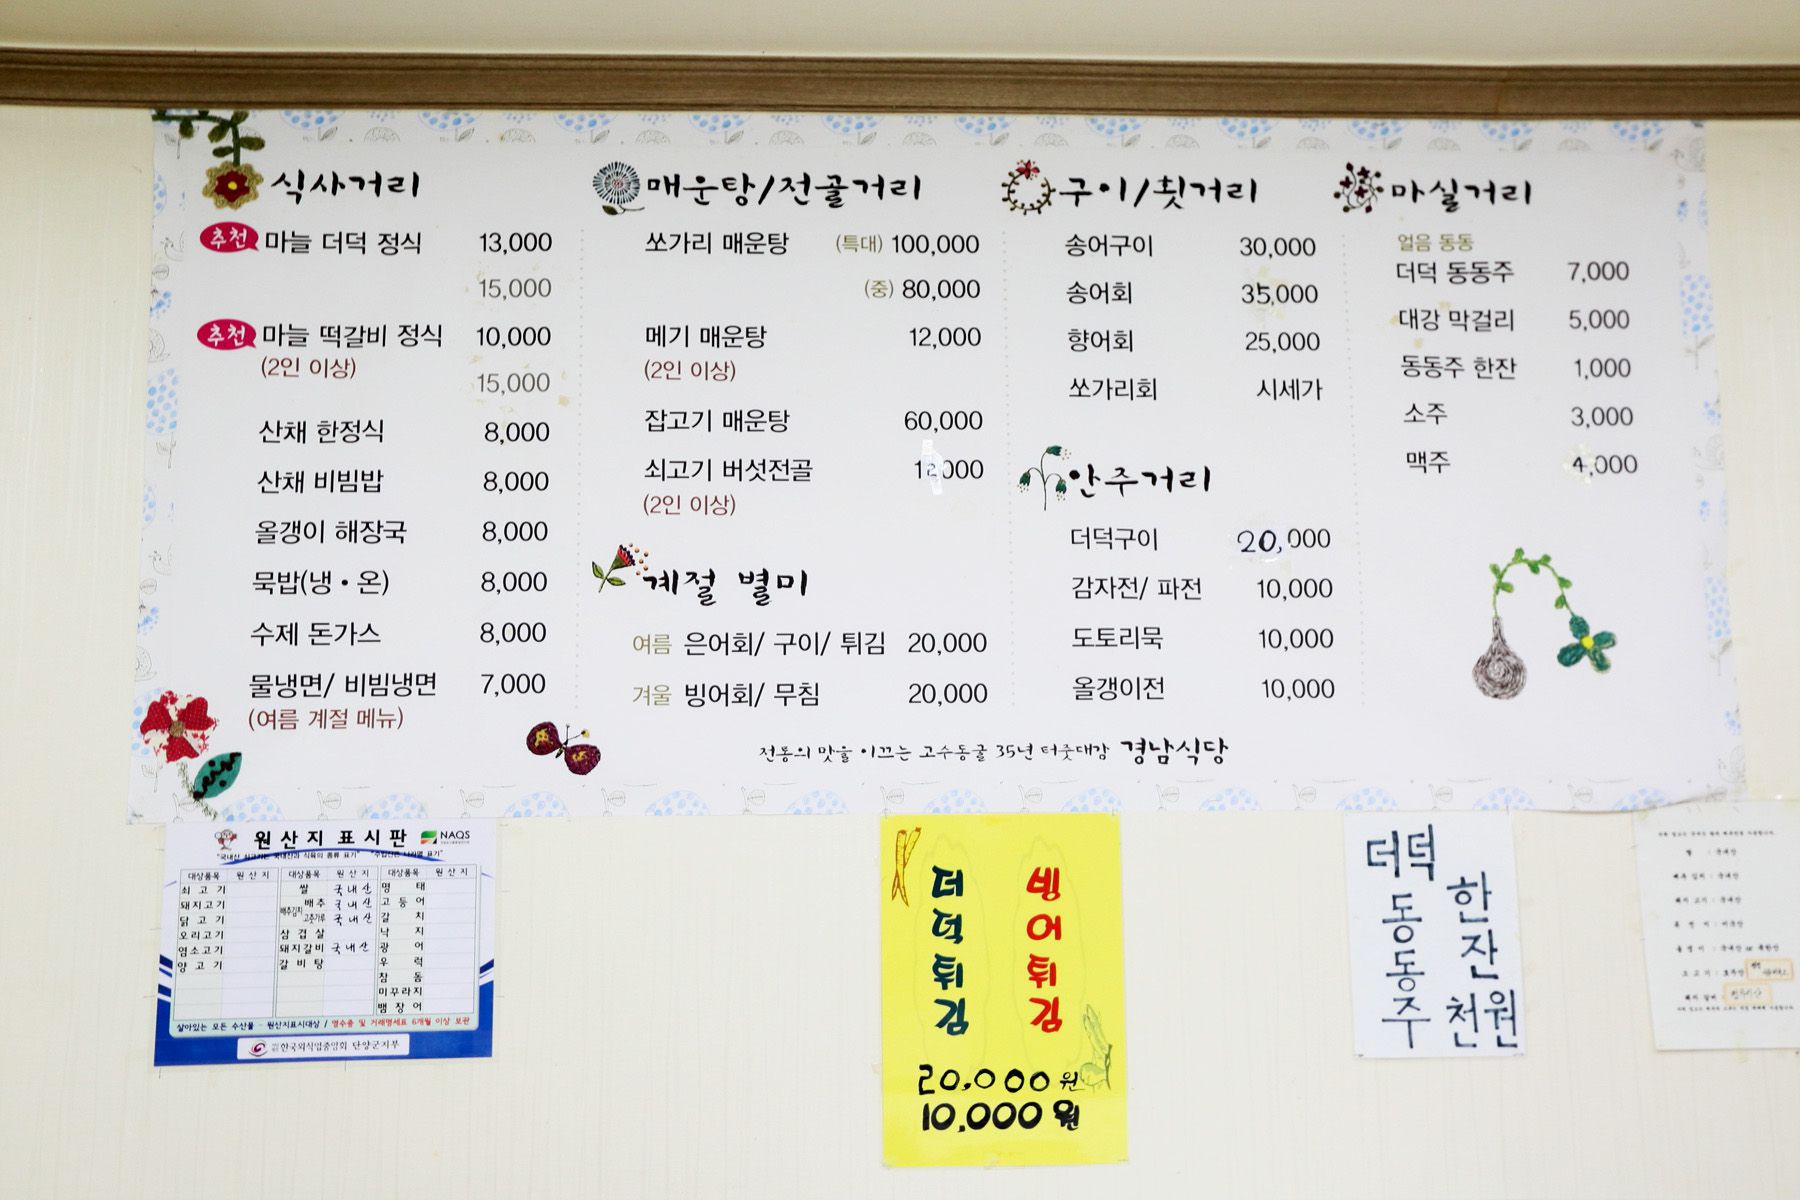 식사거리
추천 마늘 더덕 정식 13,000
15,000
추천 마늘 떡갈비 정식 10,000
(2인 이상)
15,000
산채 한정식 8,000
산채 비빔밥 8,000
올갱이 해장국 8,000
묵밥(냉·온) 8,000
수제 돈가스 8,000
물냉면/ 비빔냉면 7,000
(여름 계절 메뉴)
매운탕/전골거리
쏘가리 매운탕 (특대) 100,000
(중) 80,000
메기 매운탕 12,000
(2인 이상)
잡고기 매운탕 60,000
쇠고기 버섯전골 12,000
(2인 이상)
계절 별미
여름 은어회/ 구이/ 튀김 20,000
겨울 빙어회/ 무침 20,000
구이/횟거리
송어구이 30,000
송어회 35,000
향어회 25,000
쏘가리회 시세가
안주거리
더덕구이 20,000
감자전/ 파전 10,000
도토리묵 10,000
올갱이전 10,000
마실거리
얼음 동동
더덕 동동주 7,000
대강 막걸리 5,000
동동주 한잔 1,000
소주 3,000
맥주 4,000
전통의 맛을 이끄는 고수동굴 35년 터줏대감 경남식당
원산지표시판 NAQS
대상품목 원산지 대상품목 원산지 대상품목 원산지
쇠고기
돼지고기
닭고기
오리고기
염소고기
양고기
쌀 국내산
배추김치 배추 국내산
고춧가루 국내산
삼겹살
돼지갈비 국내산
갈비탕
명태
고등어
갈치
낙지
광어
우럭
참돔
미꾸라지
뱀장어
살아있는 모든 수산물 - 원산지표시대상 / 영수증 및 거래명세표 6개월 이상 보관
한국외식업중앙회 단양군지부
더덕튀김
빙어튀김
20,000원
10,000원
더덕동동주
한잔
천원